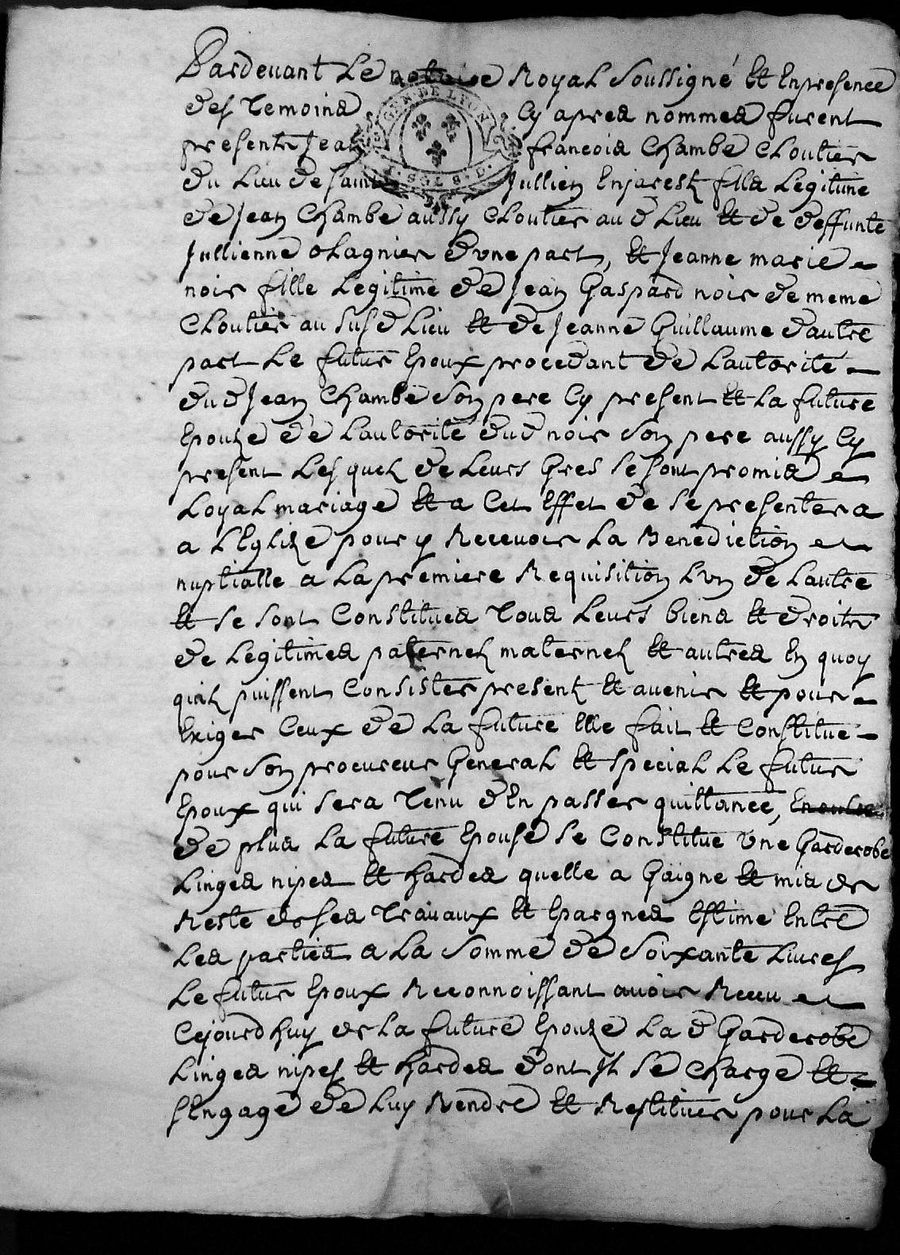 Pardevant Le notaire Royal Soussigné et Enpresence
des Temoins Cy apres nommes furent
GEN. DE LYON
presents Jean francois Chambe Cloutier
1. SOL 8. D.
du Lieu de saint Jullien Enjarest fils Legitime
de Jean Chambe aussy Cloutier au d Lieu et de deffunte
Jullienne olagnier d'vne part, et Jeanne marie
noir fille Legitime de Jean Gaspard noir de meme
Cloutier au susd Lieu et de Jeanne Guillaume d'autre
part Le futur Epoux procedant de Lautorité
dud Jean Chambe Son pere Cy present et La future
Epouze de Lautorité dud noir Son pere aussy Cy
present Lesquels de Leurs Gres se sont promis
Loyal mariage et a Cet Effet de se presenter a
a LEglize pour y Recevoir La Benediction
nuptialle a La premiere Requisition Lvn de Lautre
et se sont Constitués Tous Leurs biens et droits
de Legitimes paternels maternels et autres En quoy
quils puissent Consister presents et avenir et pour
Exiger Ceux de La future Elle fait et Constitue
pour Son procureur General et special Le futur
Epoux qui sera Tenu d'En passer quittance, En outre
de plus La future Epouse se Constitue vne Garderobe
Linges nipes et hardes quelle a Gaigné et mis de
Reste de ses Travaux et Epargnes Estimé Entre
Les parties a La Somme de Soixante Livres
Le futur Epoux Reconnoissant avoir Recu
Cejourdhuy de La future Epouze La d Garderobe
Linges nipes et hardes dont Il se Charge et
sEngage de Luy Rendre et Restituer pour La